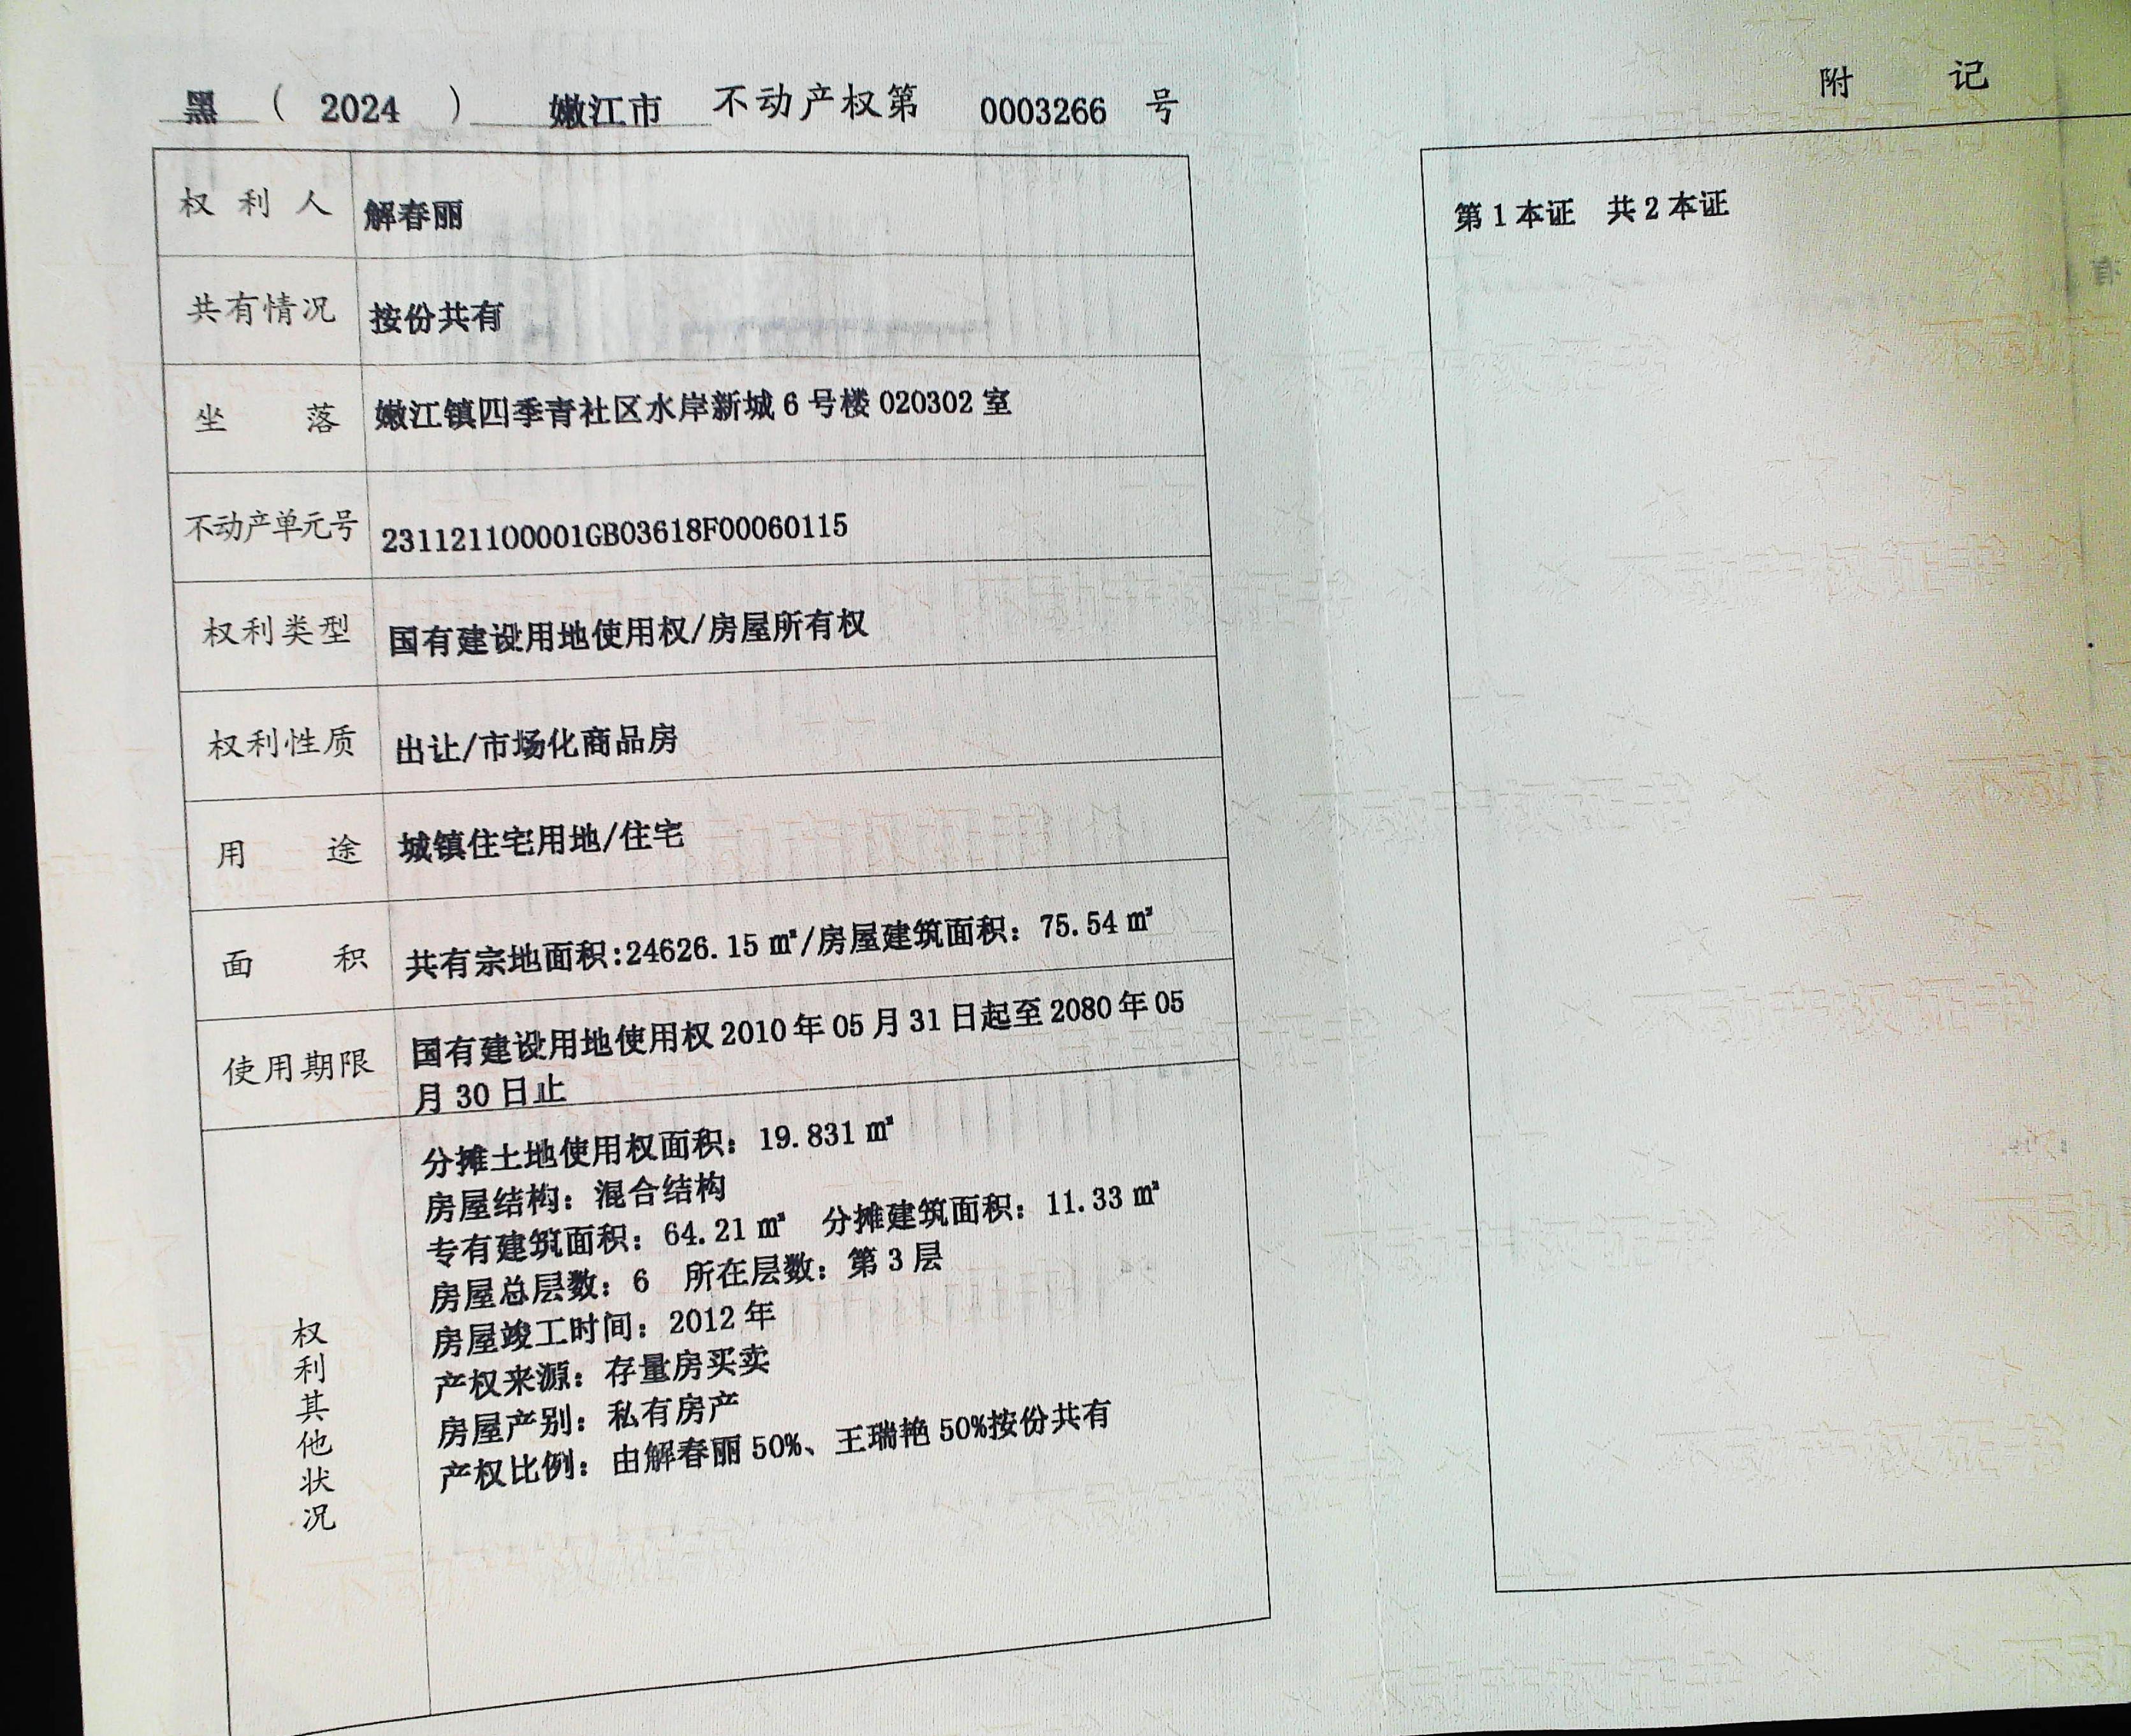 黑 ( 2024 ) 嫩江市 不动产权第 0003266 号
权利人 解春丽
共有情况 按份共有
坐落 嫩江镇四季青社区水岸新城6号楼020302室
不动产单元号 231121100001GB03618F00060115
权利类型 国有建设用地使用权/房屋所有权
权利性质 出让/市场化商品房
用途 城镇住宅用地/住宅
面积 共有宗地面积:24626.15㎡/房屋建筑面积：75.54㎡
使用期限 国有建设用地使用权2010年05月31日起至2080年05
月30日止
权利其他状况
分摊土地使用权面积：19.831㎡
房屋结构：混合结构
专有建筑面积：64.21㎡ 分摊建筑面积：11.33㎡
房屋总层数：6 所在层数：第3层
房屋竣工时间：2012年
产权来源：存量房买卖
房屋产别：私有房产
产权比例：由解春丽50%、王瑞艳50%按份共有
附记
第1本证 共2本证